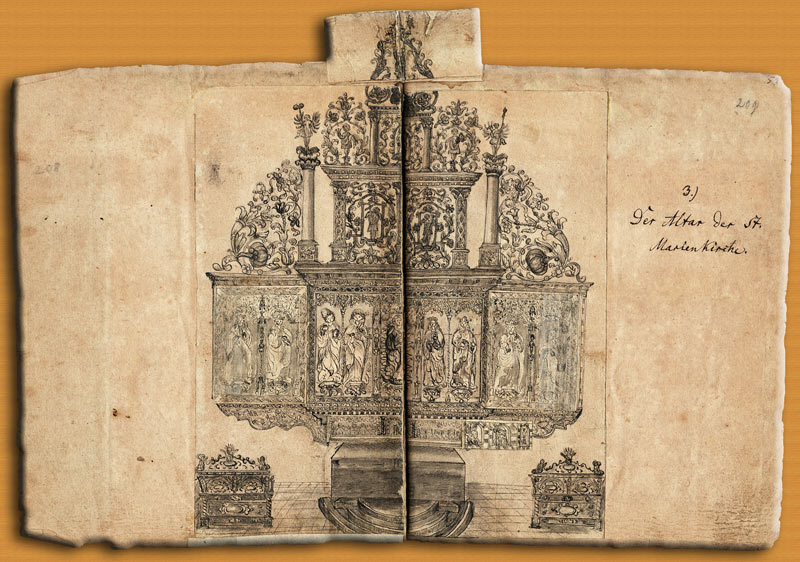 208
209
3.)
Der Altar der St.
Marienkirche.